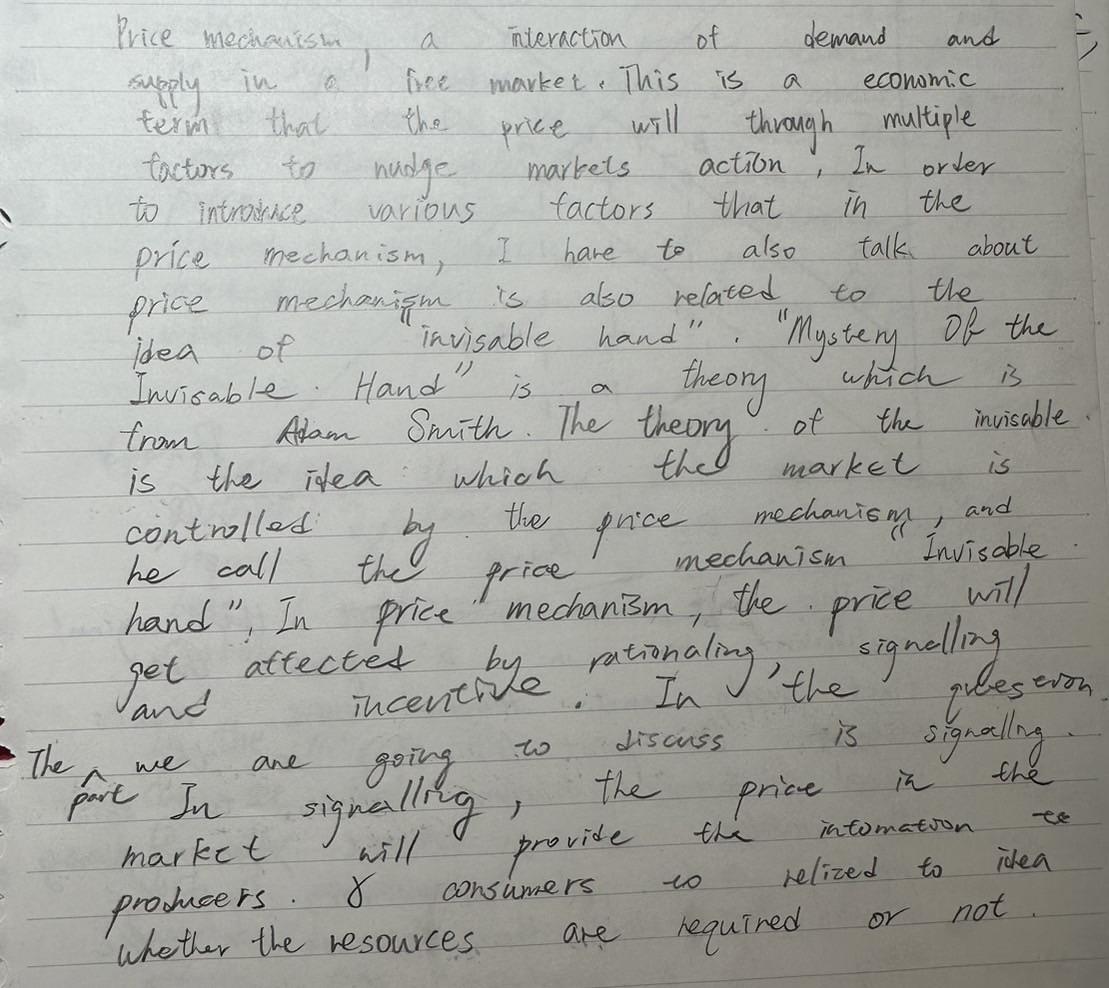 Price mechanism, a interaction of demand and
supply in a free market. This is a economic
term that the price will through multiple
factors to nudge markets action, In order
to introduce various factors that in the
price mechanism, I have to also talk about
price mechanism is also related to the
idea of "invisable hand". "Mystery Of the
Invisable Hand" is a theory which is
from Adam Smith. The theory of the invisable
is the idea which the market is
controlled by the price mechanism, and
he call the price mechanism "Invisable
hand", In price mechanism, the price will
get affected by rationaling, signelling
and incentive. In the
The part we are going to discuss is signallng.
In signallrng, the price in the
market will provide the intomation to
producers. & consumers to relized to idea
whether the resources are required or not.